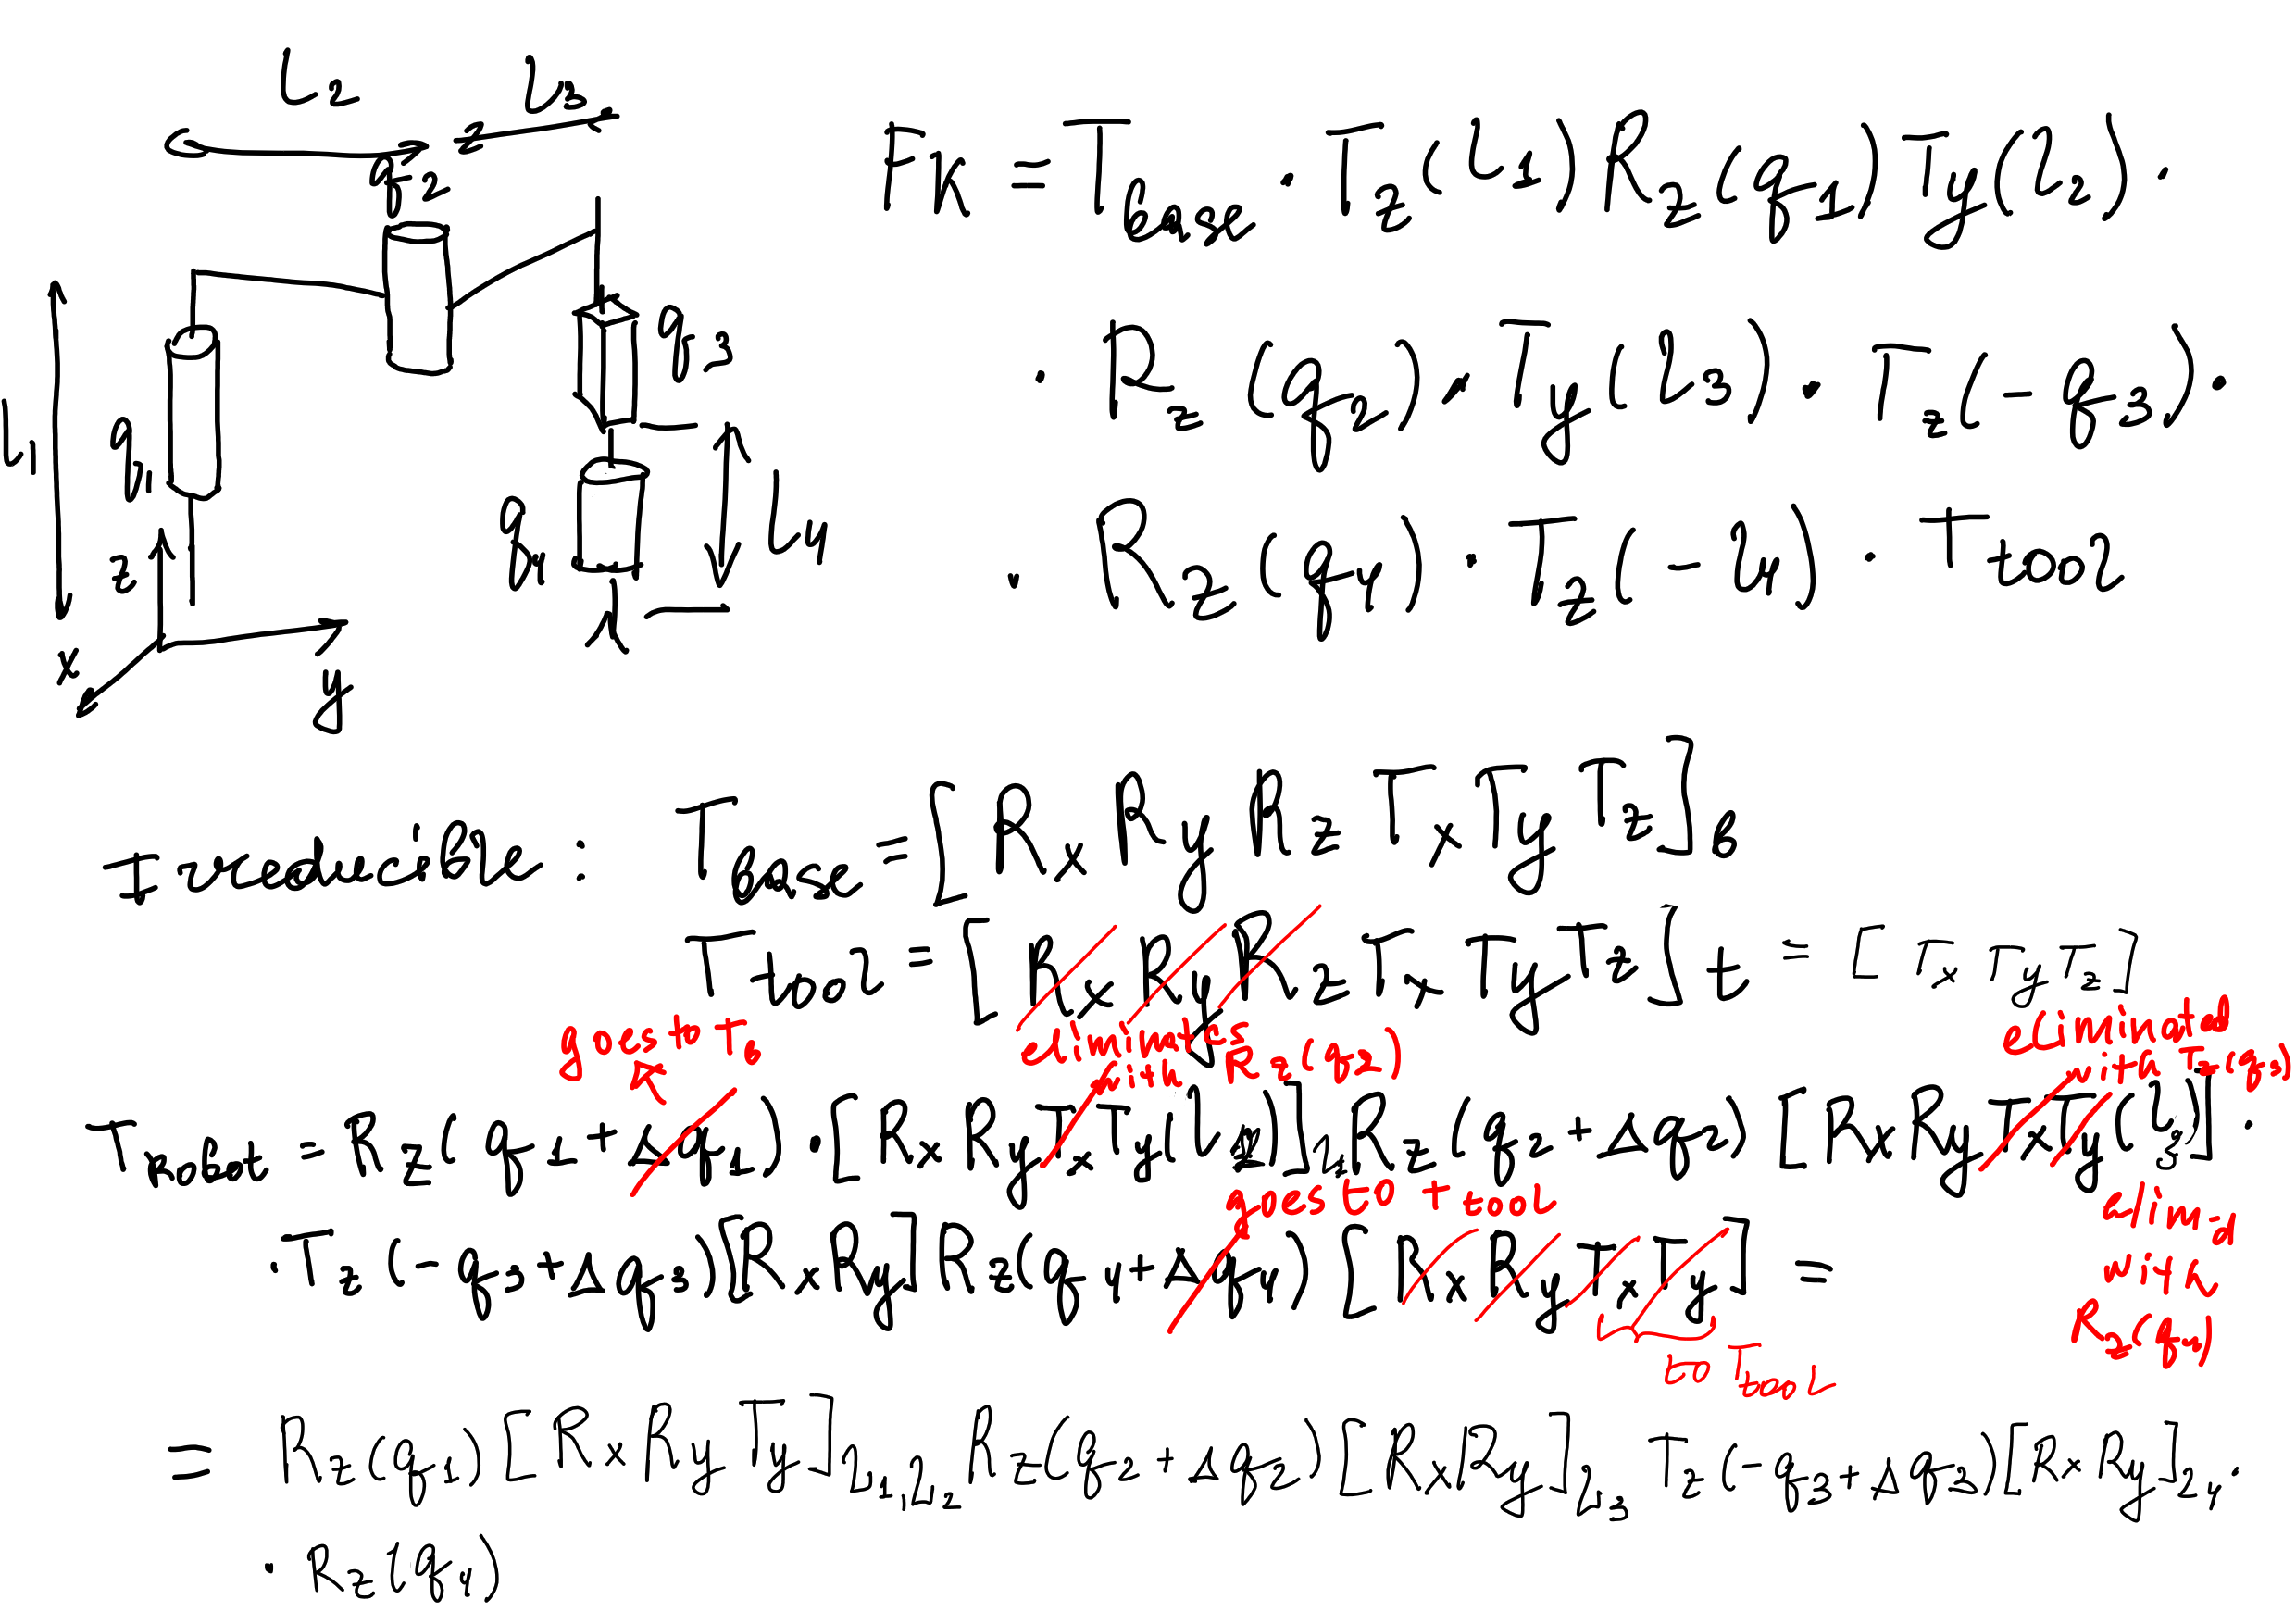 L₂ l₃
q₂
FK = T_Base · T_z(l₁) R_z(q₁) T_y(l₂) ·
· R_z(q₂) · T_y(l₃) · T_z(-q₃) ·
· R_z(q₄) · T_z(-l₄) · T_tool
l₁
q₁
q₃
q₄
l₄
z
x
y
Irreducible : T_Base = [R_x R_y R_z T_x T_y T_z]_b
T_tool = [R_x R_y R_z T_x T_y T_z]_t = [T_x T_y T_z]
goes to T_b
eliminates with R_z(q₂)
eliminated with T_z(q₃)
T_Robot = R_z(q₁ + Δq₁) · [R_x R_y T_x T_y(l₂)]_L₂ R_z(q₂ + Δq₂) [R_x R_y T_x T_y(l₃)] ·
goes to t_tool
elim-d with R_z(q₄)
· T_z(-q₃ + Δq₃)[R_x R_y] R_z(q₄ + Δq₄) [R_x R_y T_x T_y] =
to T_tool
= R_z(q₁) [R_x R_y T_y]_L₁,L₂ R_z(q₂ + Δq₂) [R_x R_y]_L₃ T_z(-q₃ + Δq₃)[R_x R_y]_L₄ ·
· R_z(q₄)